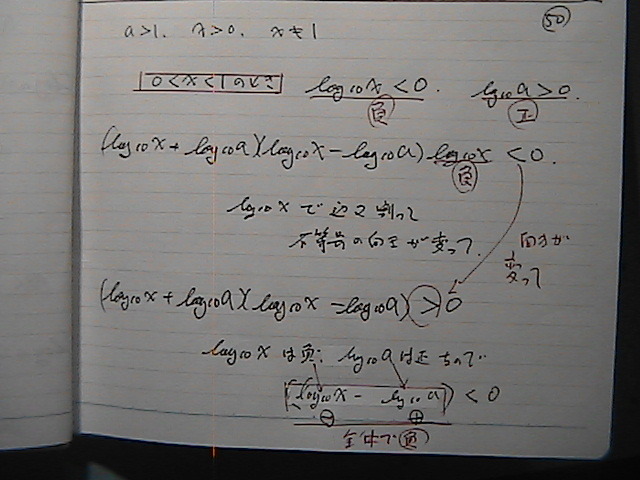 50
a>1. x>0. x≠1
0<x<1のとき log₁₀x<0. log₁₀a>0.
負 正
(log₁₀x+log₁₀a)(log₁₀x-log₁₀a) log₁₀x <0.
負
log₁₀xで辺々割って
不等号の向きが変って.
向きが
変って
(log₁₀x+log₁₀a)(log₁₀x-log₁₀a)>0
log₁₀xは負; log₁₀aは正なので
(log₁₀x - log₁₀a) <0
⊖ ⊕
全体で負